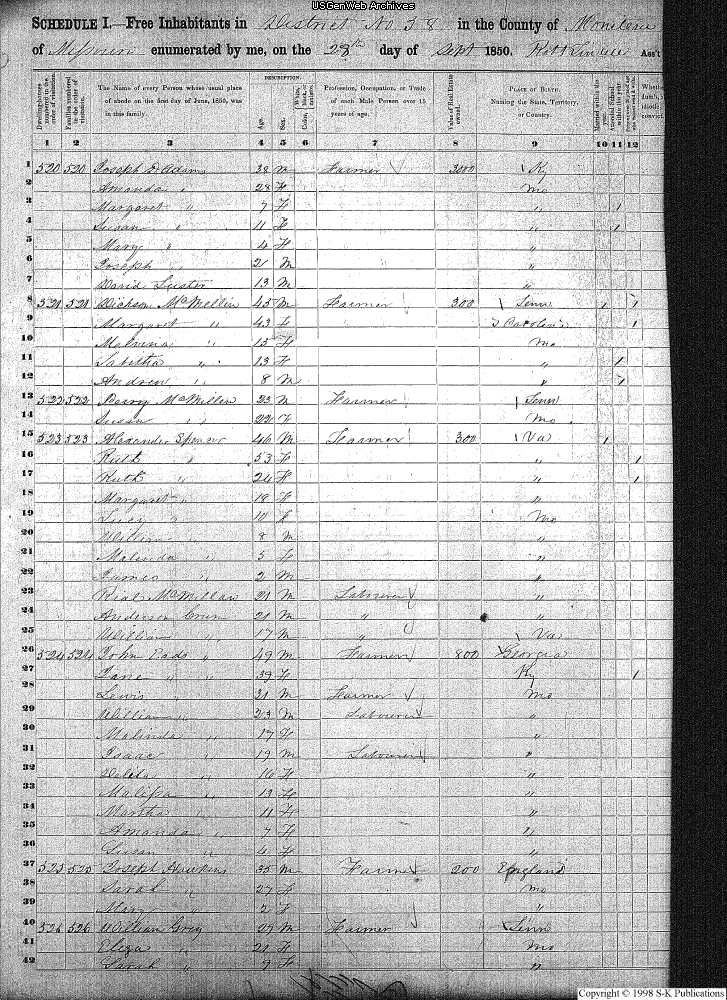 USGenWeb Archives
SCHEDULE I.—Free Inhabitants in District No 38 in the County of Moniteau
of Missouri enumerated by me, on the 28th day of Sept 1850. Ass't
DESCRIPTION.
Dwelling-houses numbered in the order of visitation.
Families numbered in the order of visitation.
The Name of every Person whose usual place of abode on the first day of June, 1850, was in this family.
Age.
Sex.
White, black, or mulatto.
Color,
Profession, Occupation, or Trade of each Male Person over 15 years of age.
Value of Real Estate owned.
PLACE OF BIRTH. Naming the State, Territory, or Country.
Married within the year.
Whether
1 2 3 4 5 6 7 8 9 10 11 12
1 520 520 Joseph D Adams 38 M Farmer 3000 Ky
2 Amanda " 28 F Mo
3 Margaret " 7 F " 1
4 Susan " 11 F " 1
5 Mary " 4 F "
6 Joseph " 2 M "
7 David 13 M "
8 521 521 Dickson McMellin 45 M Farmer 300 Tenn 1 1
9 Margaret " 43 F S Carolina 1
10 Malvina " 15 F Mo
11 Tabitha " 13 F " 1
12 Andrew " 8 M " 1
13 522 522 Perry McMillen 23 M Farmer Tenn
14 Susan " 22 F Mo
15 523 523 Alexander Spencer 46 M Farmer 300 Va 1
16 Ruth " 53 F " 1
17 Ruth " 24 F " 1
18 Margaret " 18 F "
19 Lucy " 10 F Mo
20 William " 8 M "
21 Malinda " 5 F "
22 James " 2 M "
23 McMillan 21 M Labourer "
24 Anderson 21 M " "
25 William " 17 M " Va
26 524 524 John Eads " 49 M Farmer 800 Georgia
27 Jane " 39 F Ky 1
28 Lewis " 21 M Farmer Mo
29 William " 23 M Labourer "
30 Malinda " 17 F "
31 Isaac " 19 M Labourer "
32 " 16 F "
33 Malissa " 13 F "
34 Martha " 11 F "
35 Amanda " 7 F "
36 Susan " 4 F "
37 525 525 Joseph Hawkins 35 M Farmer 200 England
38 Sarah " 27 F Mo
39 Mary " 2 F "
40 526 526 William Grey 29 M Farmer Tenn
41 Eliza " 21 F Mo
42 Sarah " 7 F "
Copyright © 1998 S-K Publications